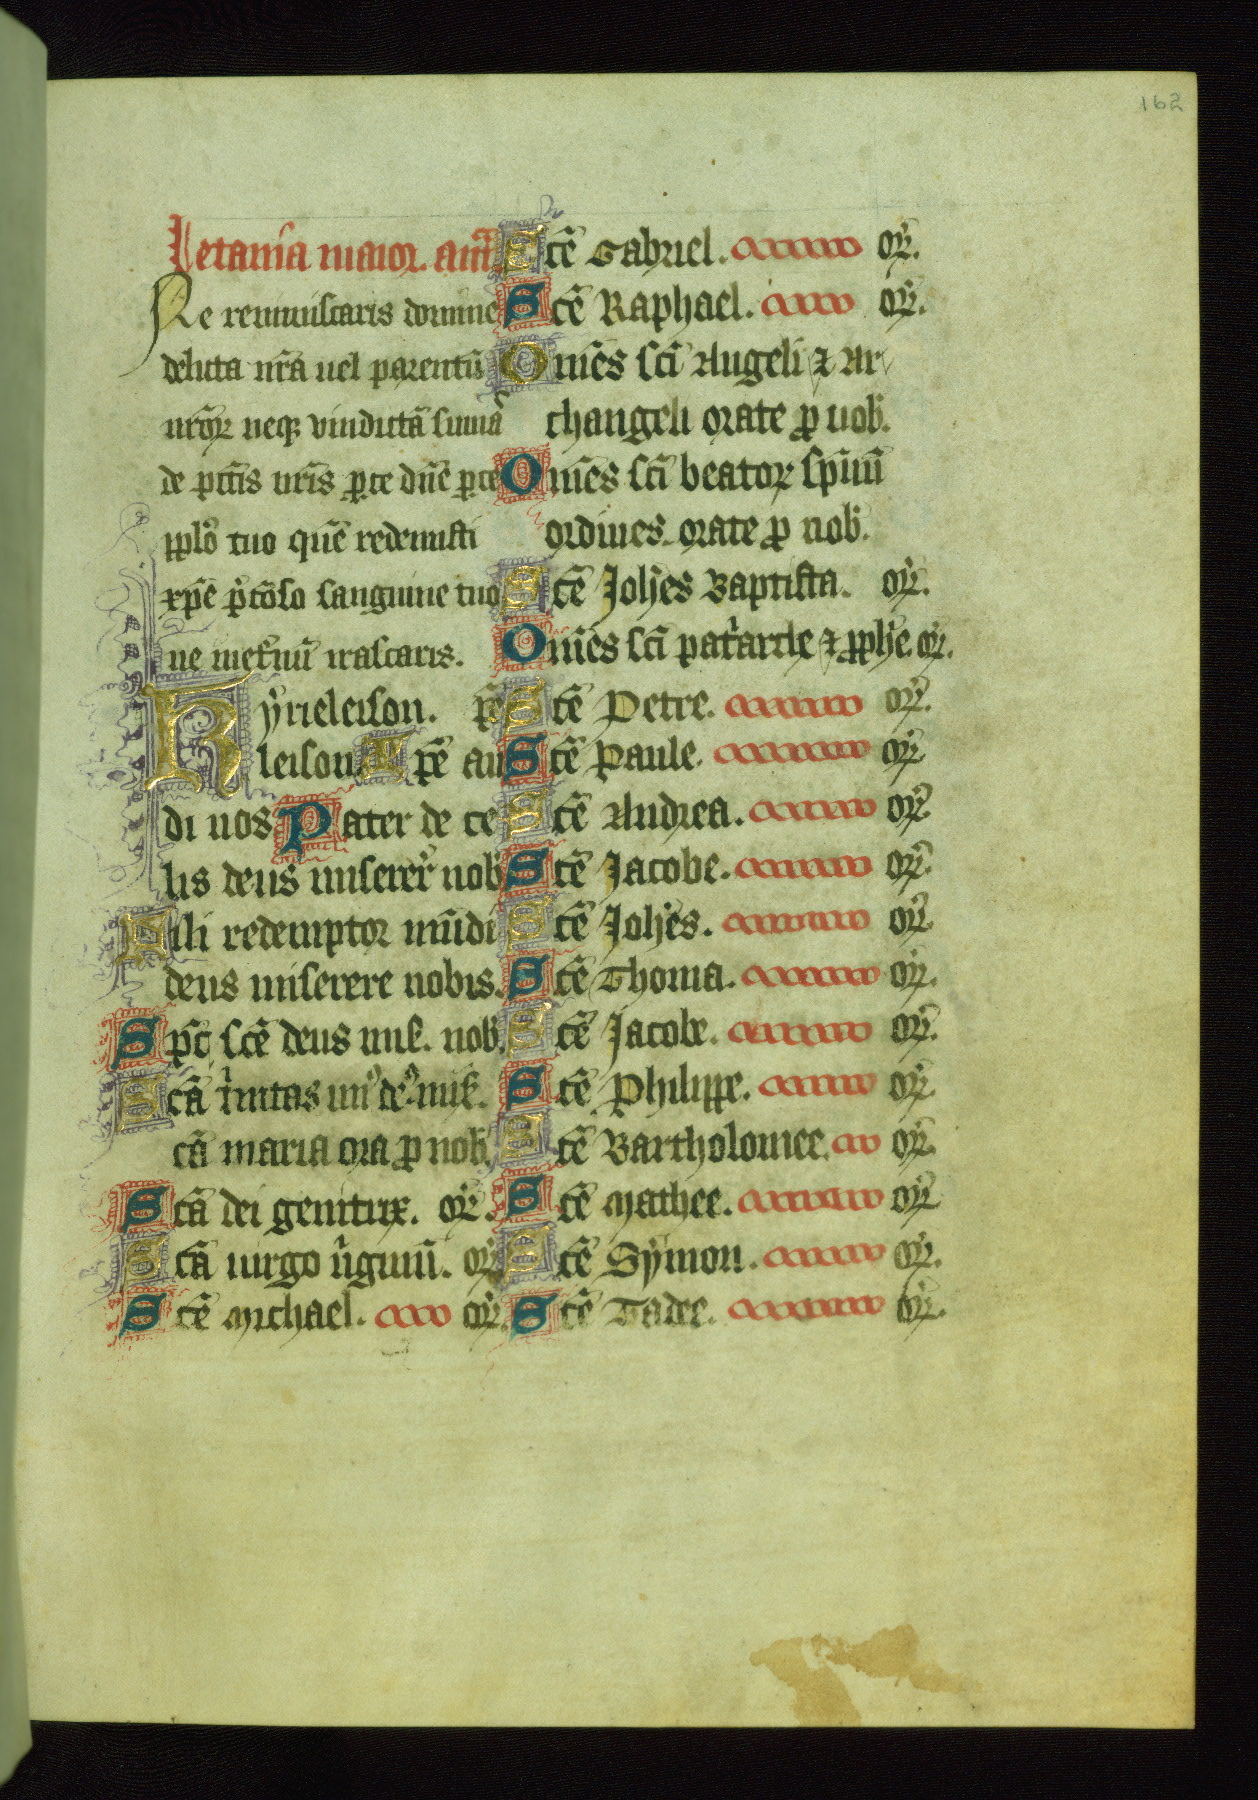 162
Letania maior. añ
Ne reminiscaris domine
delicta nr̄a uel parentū
nr̄oꝝ neqꝫ vindictā sumas
de pctīs nr̄is ꝑce dn̄e ꝑce
pplo tuo quē redemisti
xp̄e p̄cioso sanguine tuo
ne inet̄nū irascaris.
Kyrieleison. xp̄e
leison Xp̄e au
di nos Pater de ce
lis deus miserer̄ nob̄
Fili redemptor mūdi
deus miserere nobis.
Sp̄c sc̄e deus mis̄. nob̄.
Scā t̄nitas un⁹ de⁹ mis̄.
cā maria ora ꝓ nob̄.
Scā dei genitrix. or̄.
Scā uirgo ūginū. or̄
Sc̄e Michael. or̄.
Sc̄e Gabriel. or̄.
Sc̄e Raphael. or̄.
Om̄es sc̄i Angeli ⁊ Ar
changeli orate ꝓ nob̄.
Om̄es sc̄i beatoꝝ sp̄iuū
ordines. orate ꝓ nob̄.
Sc̄e Joh̄es Baptista. or̄.
Om̄es sc̄i pat̄arche ⁊ ꝓph̄e or̄.
Sc̄e Petre. or̄.
Sc̄e Paule. or̄.
Sc̄e Andrea. or̄
Sc̄e Jacobe. or̄.
Sc̄e Joh̄es. or̄.
Sc̄e Thoma. or̄.
Sc̄e Jacobe. or̄.
Sc̄e Philippe. or̄.
Sc̄e Bartholomee. or̄.
Sc̄e Mathee. or̄
Sc̄e Symon. or̄.
Sc̄e Tadee. or̄.